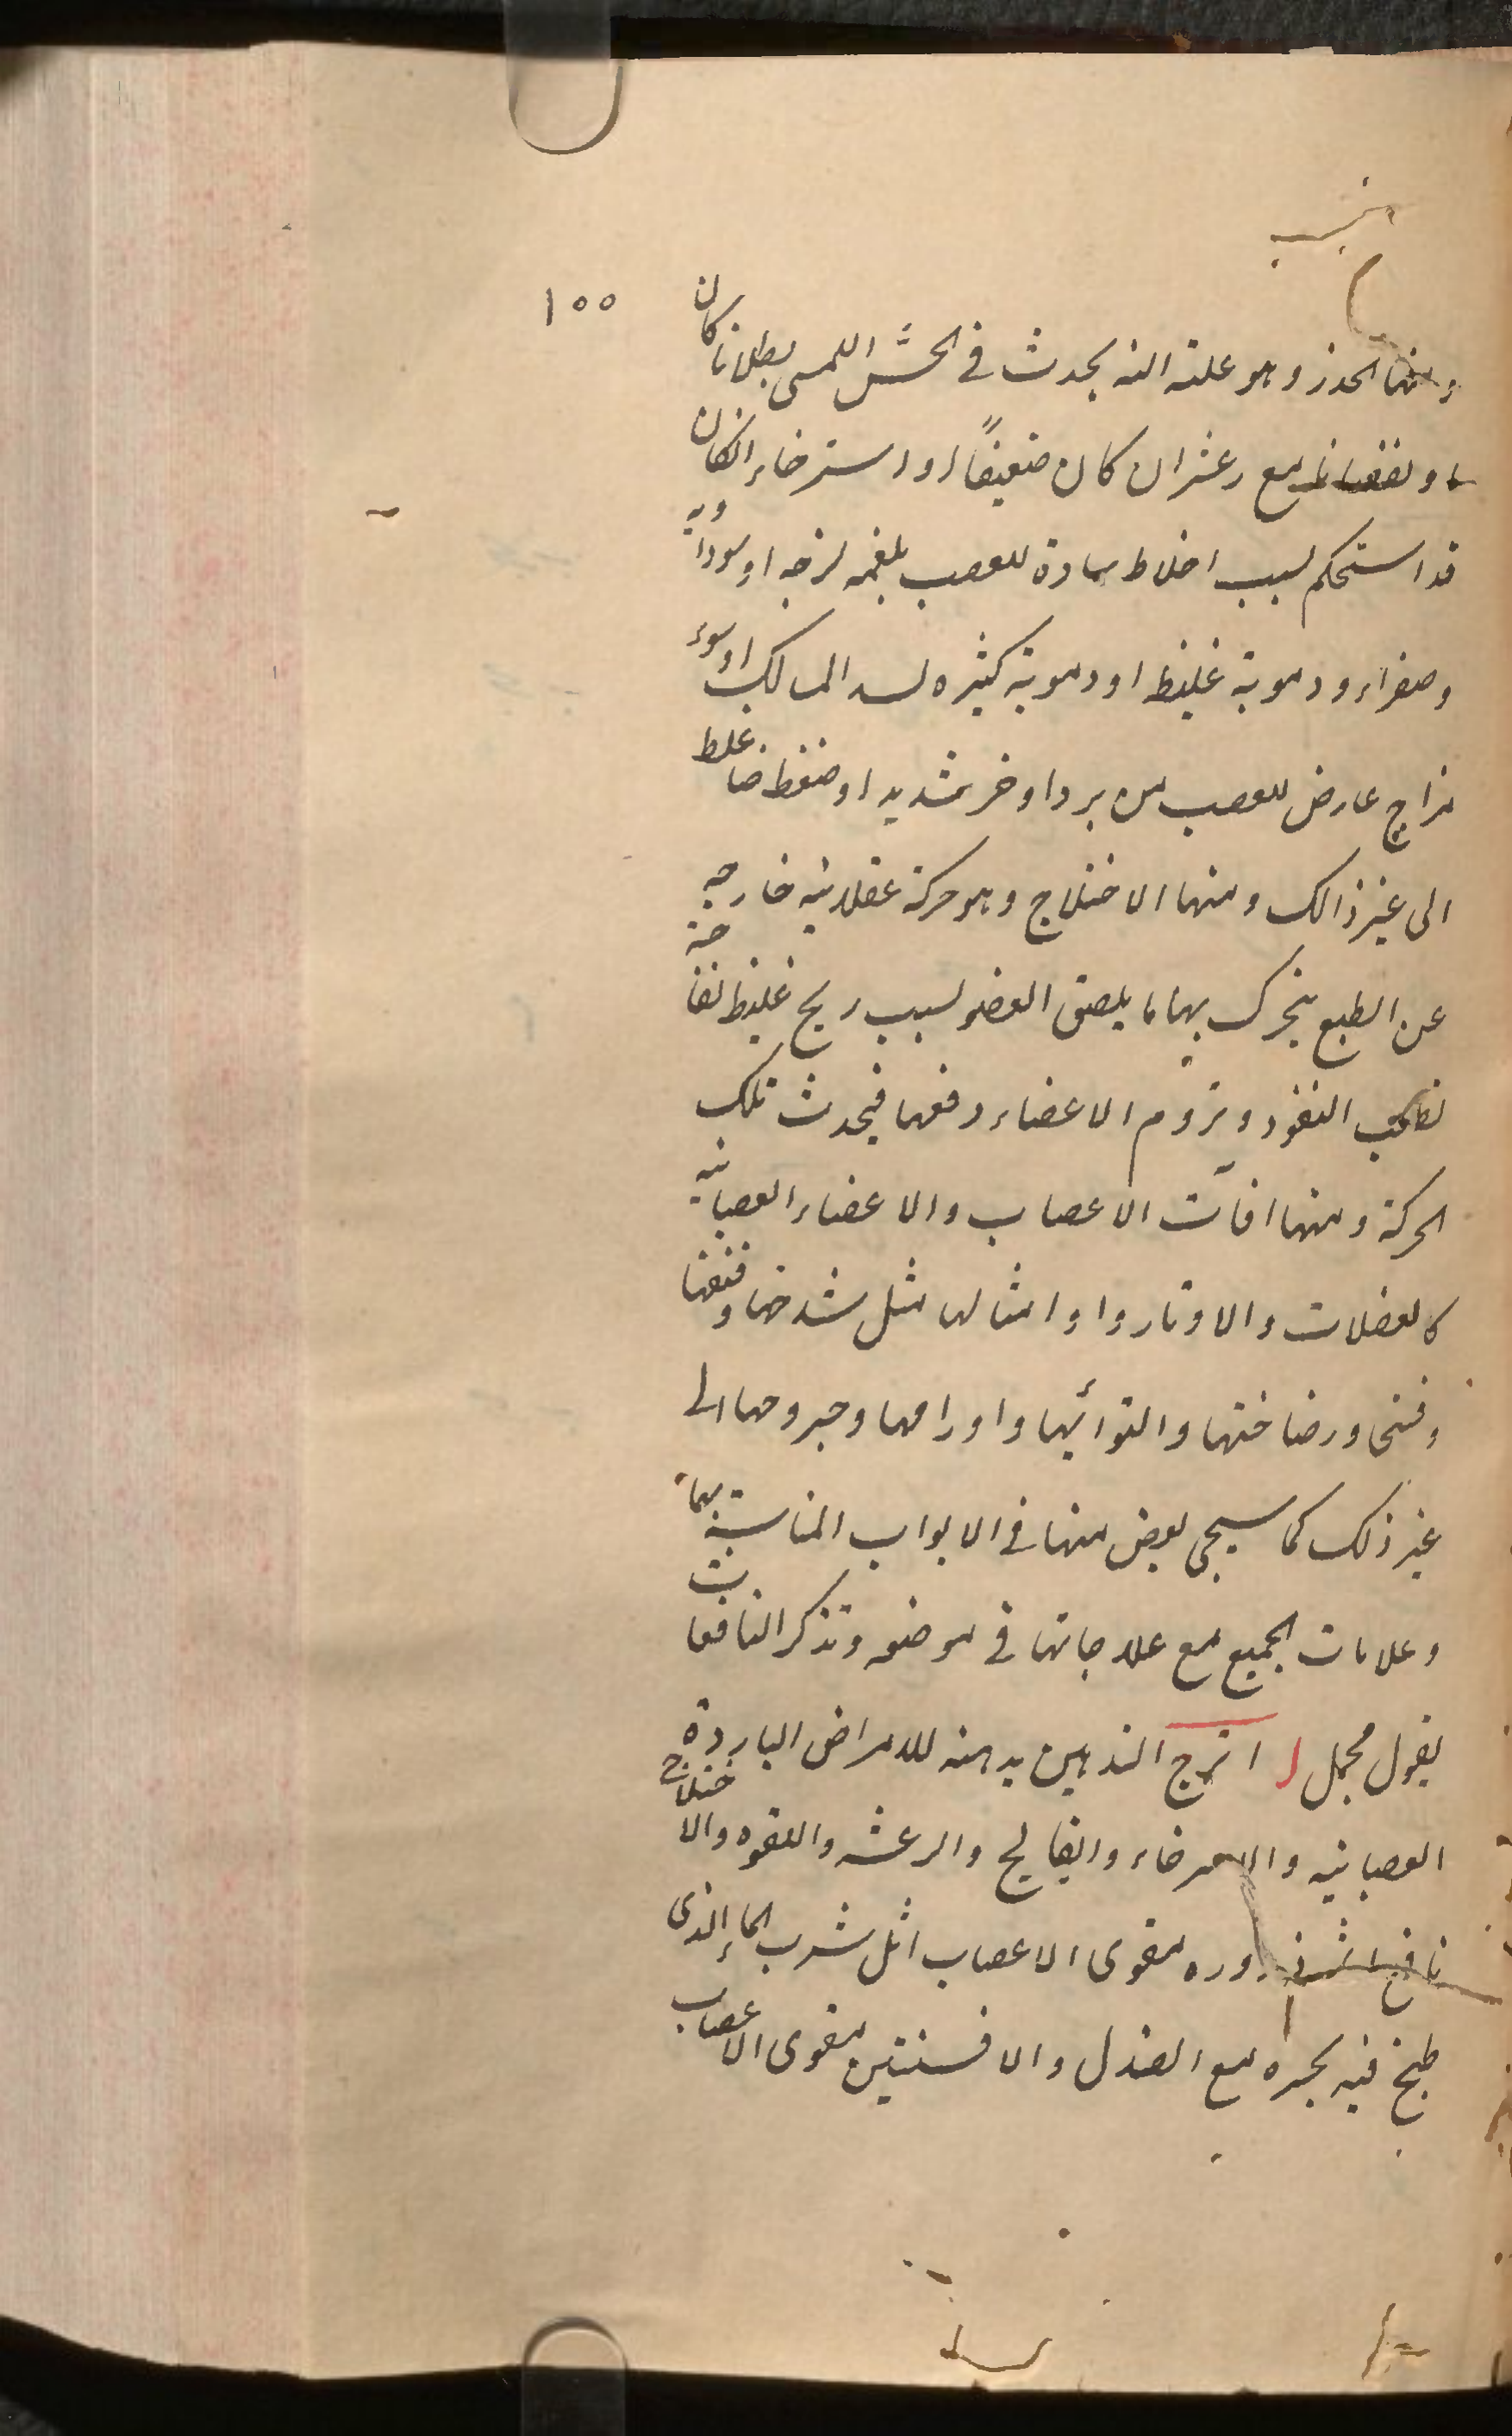 ١٥٥
ومنها الخدر وهو علته النه يحدث في الحسّ اللمسى بطلانا كان
او نقصانا مع رعشران كان ضعيفًا او استرخاء انكان
قد استحكم لسبب اخلاط سادة للعصب بلغميه لزجه او سوداويه
وصفراء ودمويته غليظ او دمويته كثيره لسد المسالك او سوء
مزاج عارض للعصب من برد او خر شديد او ضغط ضاغط
الى غير ذالك ومنها الاختلاج وهو حركة عضلانيه خارجيه
عن الطبع يتحرك بها ما يلصق العضو لسبب ريح غليظ نفاخة
لطلب النفوذ و تروم الاعضاء دفعها فيحدث تلك
الحركة ومنها افآت الاعصاب والاعضاء العصبانيه
كالعضلات والاوتار وا وامثالها مثل شدخها و
وفتى ورضاختها والتوائها واورامها وجروحها الى
غير ذلك كما سيجى بعض منها في الابواب المناسبة بهما
وعلامات الجميع مع علاجاتها في موضعه وتذكر النافعات
بقول مجمل ا اترج التدهين بدهنه للامراض الباردة
العصبانيه والاسترخاء والفالج والرعشه واللقوه والاختلاج
نافع وره مقوى الاعصاب اثل شرب الماء الذى
طبخ فيه بجره مع الصندل والافسنتين مقوى الاعصاب